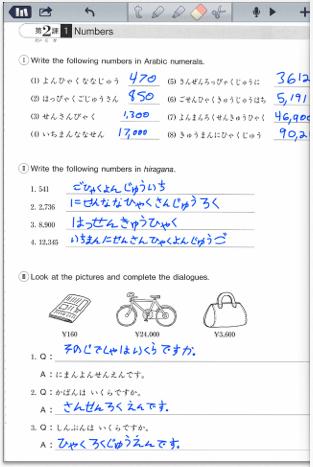 第2課 1 Numbers
だい か
I Write the following numbers in Arabic numerals.
(1) よんひゃくななじゅう 470 (5) さんぜんろっぴゃくじゅうに 3612
(2) はっぴゃくごじゅうさん 850 (6) ごせんひゃくきゅうじゅうはち 5,191
(3) せんさんびゃく 1,300 (7) よんまんろくせんきゅうひゃく 46,900
(4) いちまんななせん 17,000 (8) きゅうまんにひゃくじゅう 90,2
II Write the following numbers in hiragana.
1. 541 ごひゃくよんじゅういち
2. 2,736 にせんななひゃくさんじゅうろく
3. 8,900 はっせんきゅうひゃく
4. 12,345 いちまんにせんさんひゃくよんじゅうご
III Look at the pictures and complete the dialogues.
¥160 ¥24,000 ¥3,600
1. Q: そのじでしゃはいくらですか。
A: にまんよんせんえんです。
2. Q: かばんは いくらですか。
A: さんぜんろくえんです。
3. Q: しんぶんは いくらですか。
A: ひゃくろくじゅうえんです。